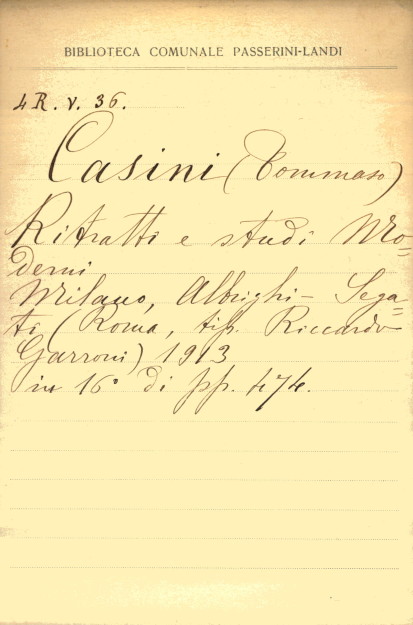 BIBLIOTECA COMUNALE PASSERINI-LANDI
4 R. V. 36.
Casini (Tommaso)
Ritratti e studi Mo=
derni
Milano, Albrighi - Sega=
ti (Roma, tip. Riccardo
Garroni) 1913
in 16° di pp. 474.